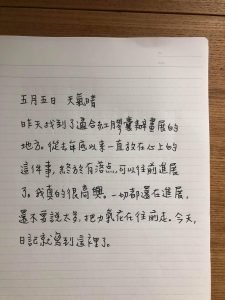 五月五日 天氣晴
昨天找到了適合紅膠囊辦畫展的
地方。從去年底以來一直放在心上的
這件事，終於有落點，可以往前進展
了。我真的很高興。一切都還在進展，
還不要說太多，把力氣花在往前走。今天，
日記就寫到這裡了。